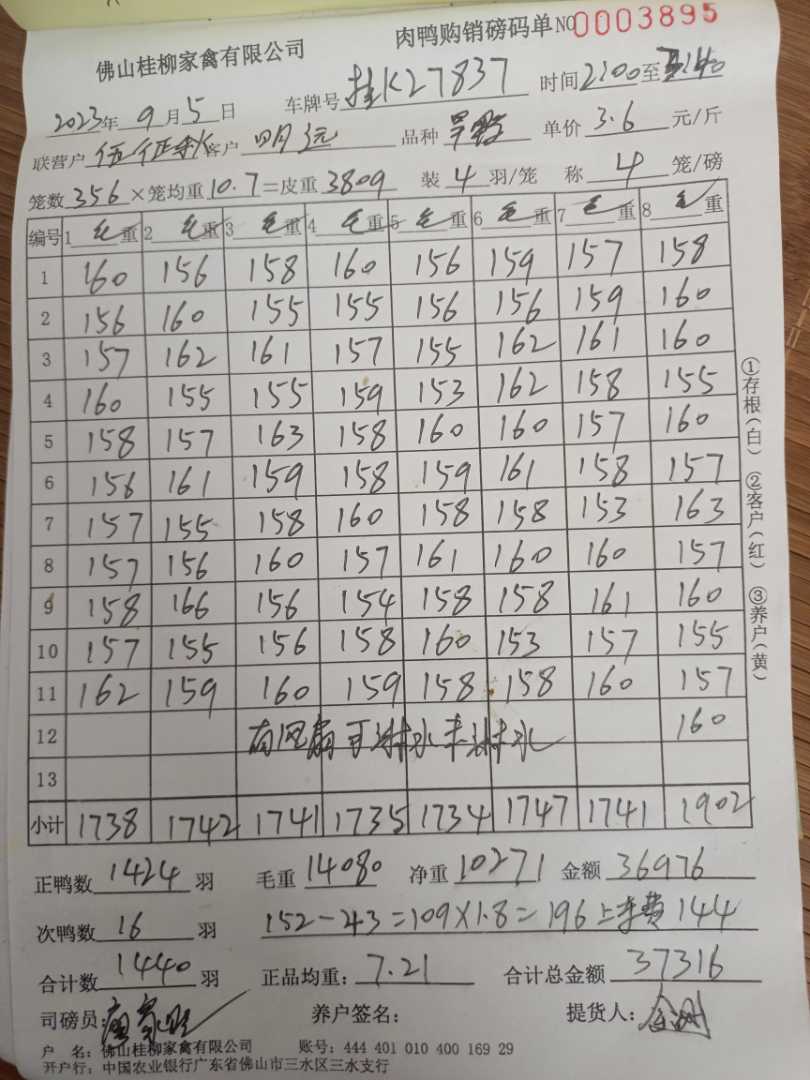 佛山桂柳家禽有限公司 肉鸭购销磅码单 NO 0003895
2023年 9月 5日 车牌号 桂K27837 时间 2:00 至 3:40
联营户 客户 明远 品种 单价 3.6 元/斤
笼数 356 × 笼均重 10.7 = 皮重 3809 装 4 羽/笼 称 4 笼/磅
编号 1 毛重 2 毛重 3 毛重 4 毛重 5 毛重 6 毛重 7 毛重 8 毛重
1 160 156 158 160 156 159 157 158
2 156 160 155 155 156 156 159 160
3 157 162 161 157 155 162 161 160
4 160 155 155 159 153 162 158 155
5 158 157 163 158 160 160 157 160
6 156 161 159 158 159 161 158 157
7 157 155 158 160 158 158 153 163
8 157 156 160 157 161 160 160 157
9 158 166 156 154 158 158 161 160
10 157 155 156 158 160 153 157 155
11 162 159 160 159 158 158 160 157
12 有风扇可淋水未淋水 160
13
小计 1738 1742 1741 1735 1734 1747 1741 1902
①存根(白) ②客户(红) ③养户(黄)
正鸭数 1424 羽 毛重 14080 净重 10271 金额 36976
次鸭数 16 羽 152-43=109×1.8=196 上车费 144
合计数 1440 羽 正品均重: 7.21 合计总金额 37316
司磅员: 养户签名: 提货人:
户 名: 佛山桂柳家禽有限公司 账号: 444 401 010 400 169 29
开户行: 中国农业银行广东省佛山市三水区三水支行